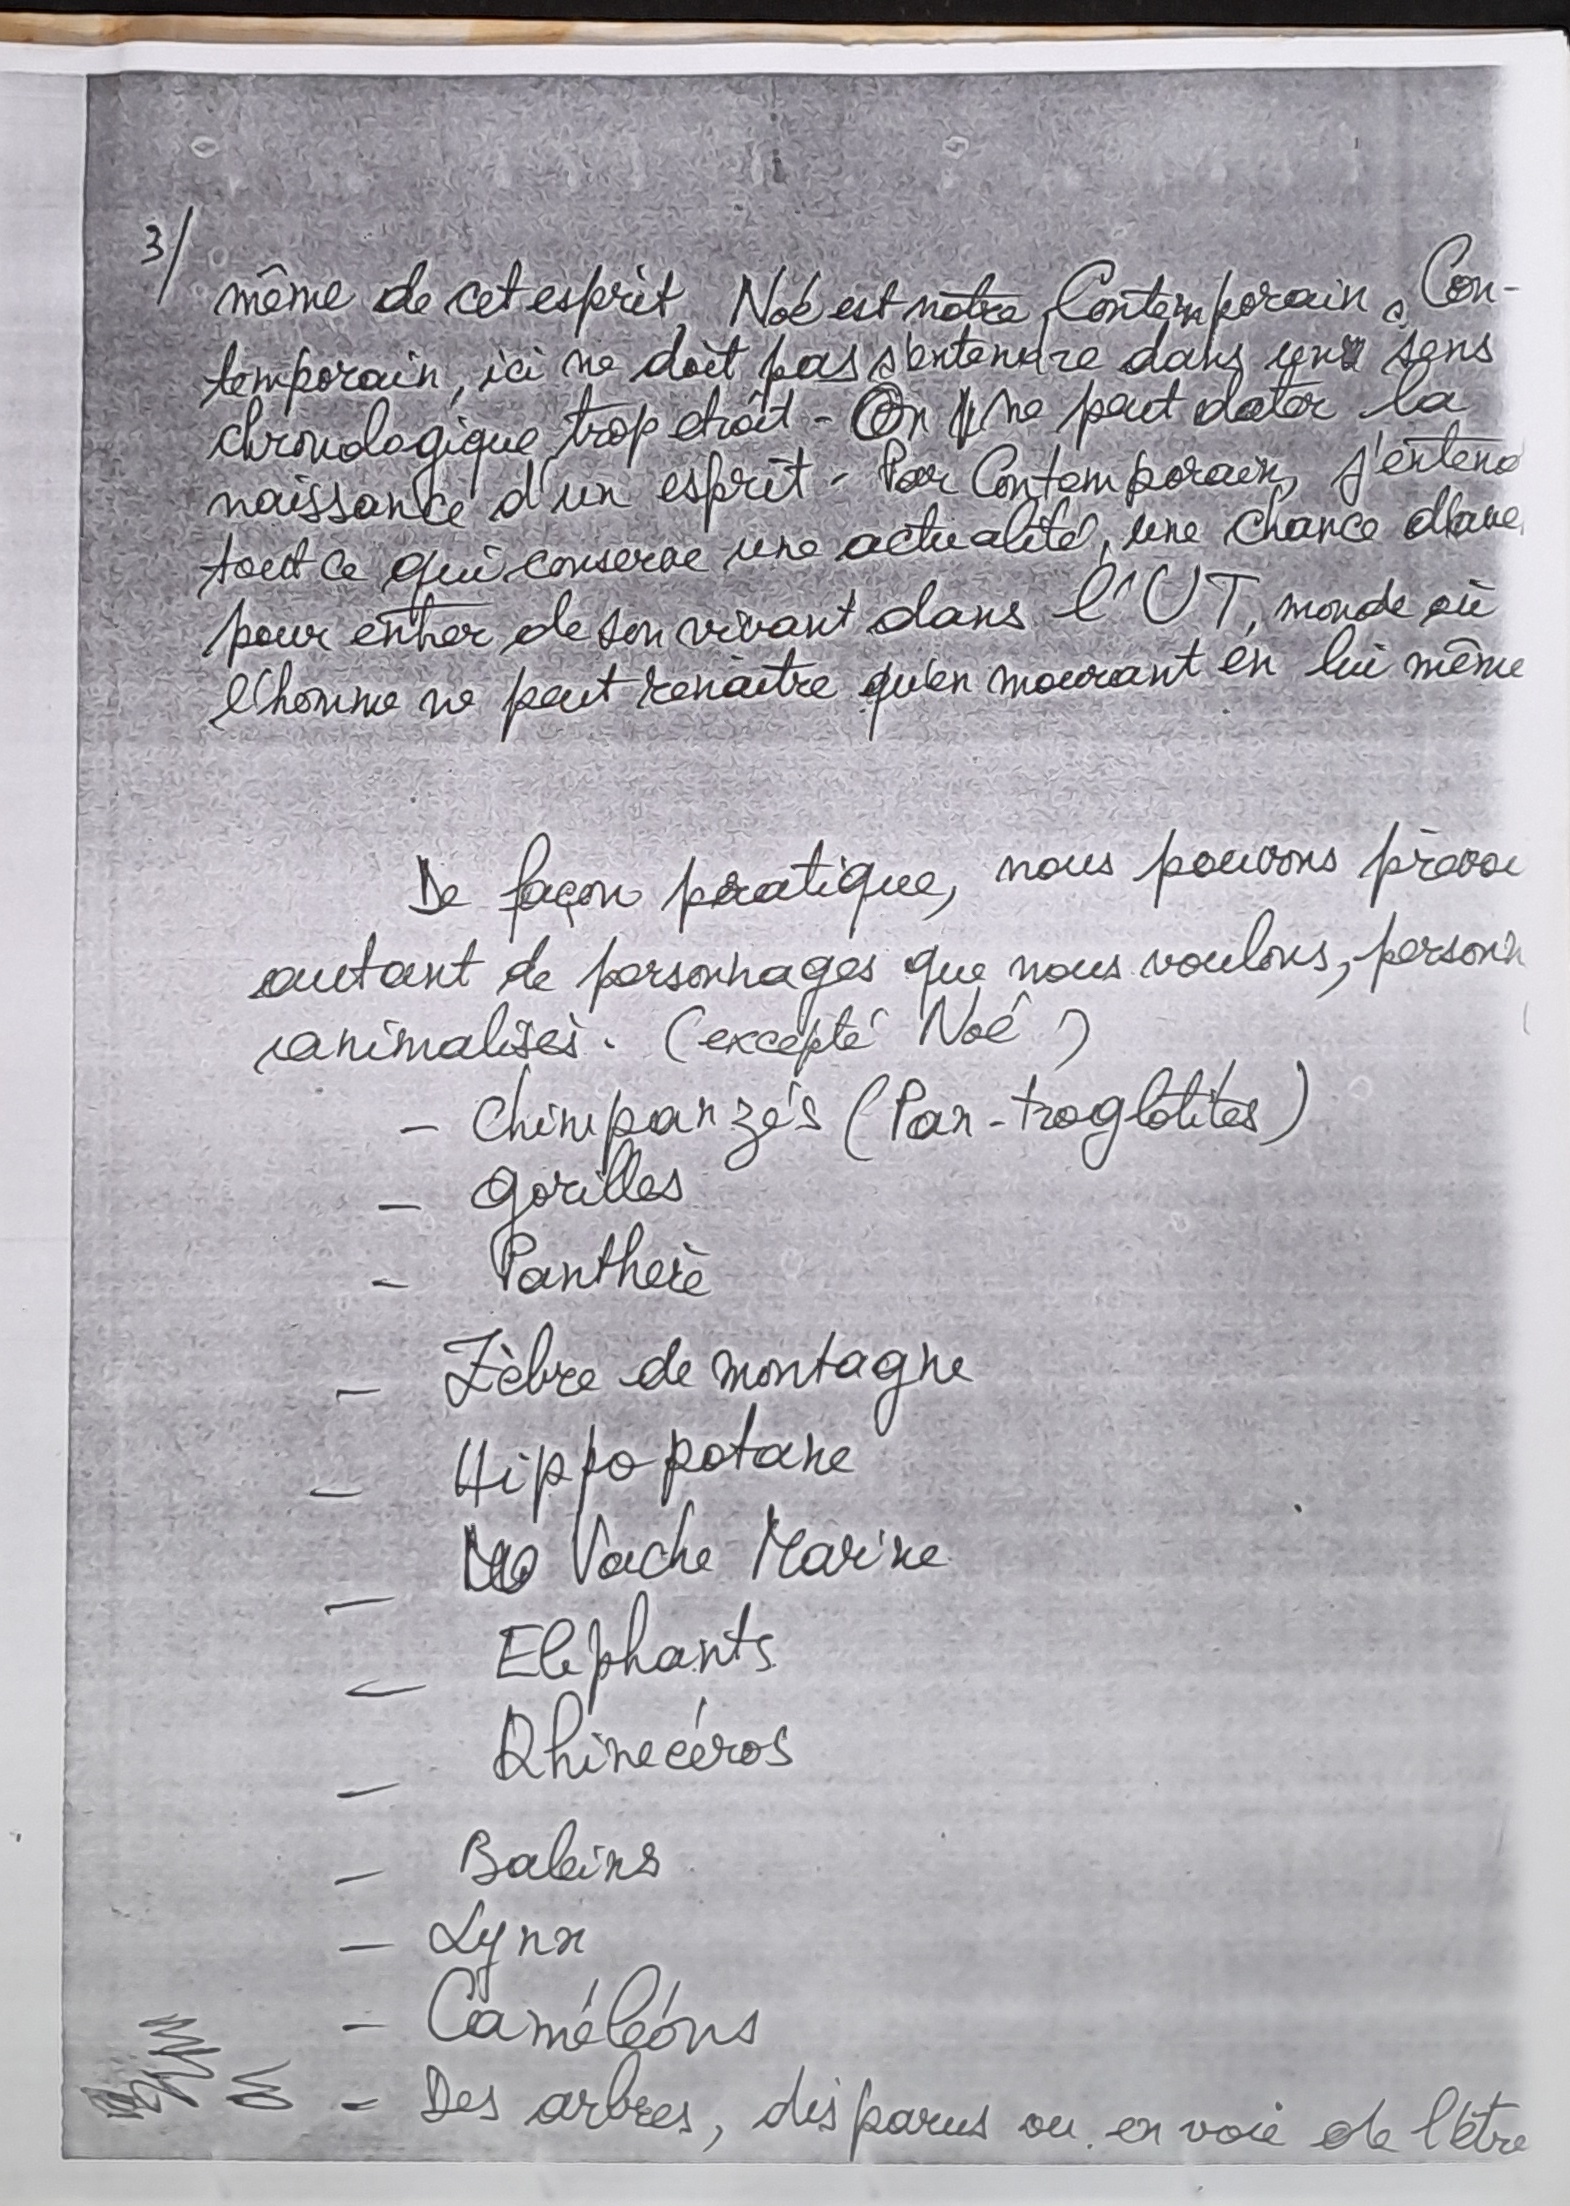 3/
même de cet esprit, Noé est notre Contemporain. Con-
temporain, ici ne doit pas s'entendre dans un sens
chronologique trop etroit - On ne peut dater la
naissance d'un esprit - Par Contemporain, j'entend
tout ce qui conserve une actualité, une chance d'ave
pour entrer de son vivant dans l'UT, monde où
l'homme ne peut renaître qu'en mourant en lui même
De façon pratique, nous pouvons prévoi
autant de personnages que nous voulons, personn
animalisés. (excepté Noé)
- Chimpanzés (Pan-troglotites)
- gorilles
- Panthère
- Zèbre de montagne
- Hippopotane
- Vache Marine
- Elephants
- Rhinecéros
- Baleins
- Lynx
- Caméléóns
- Des arbres, disparus ou en voie de l'être